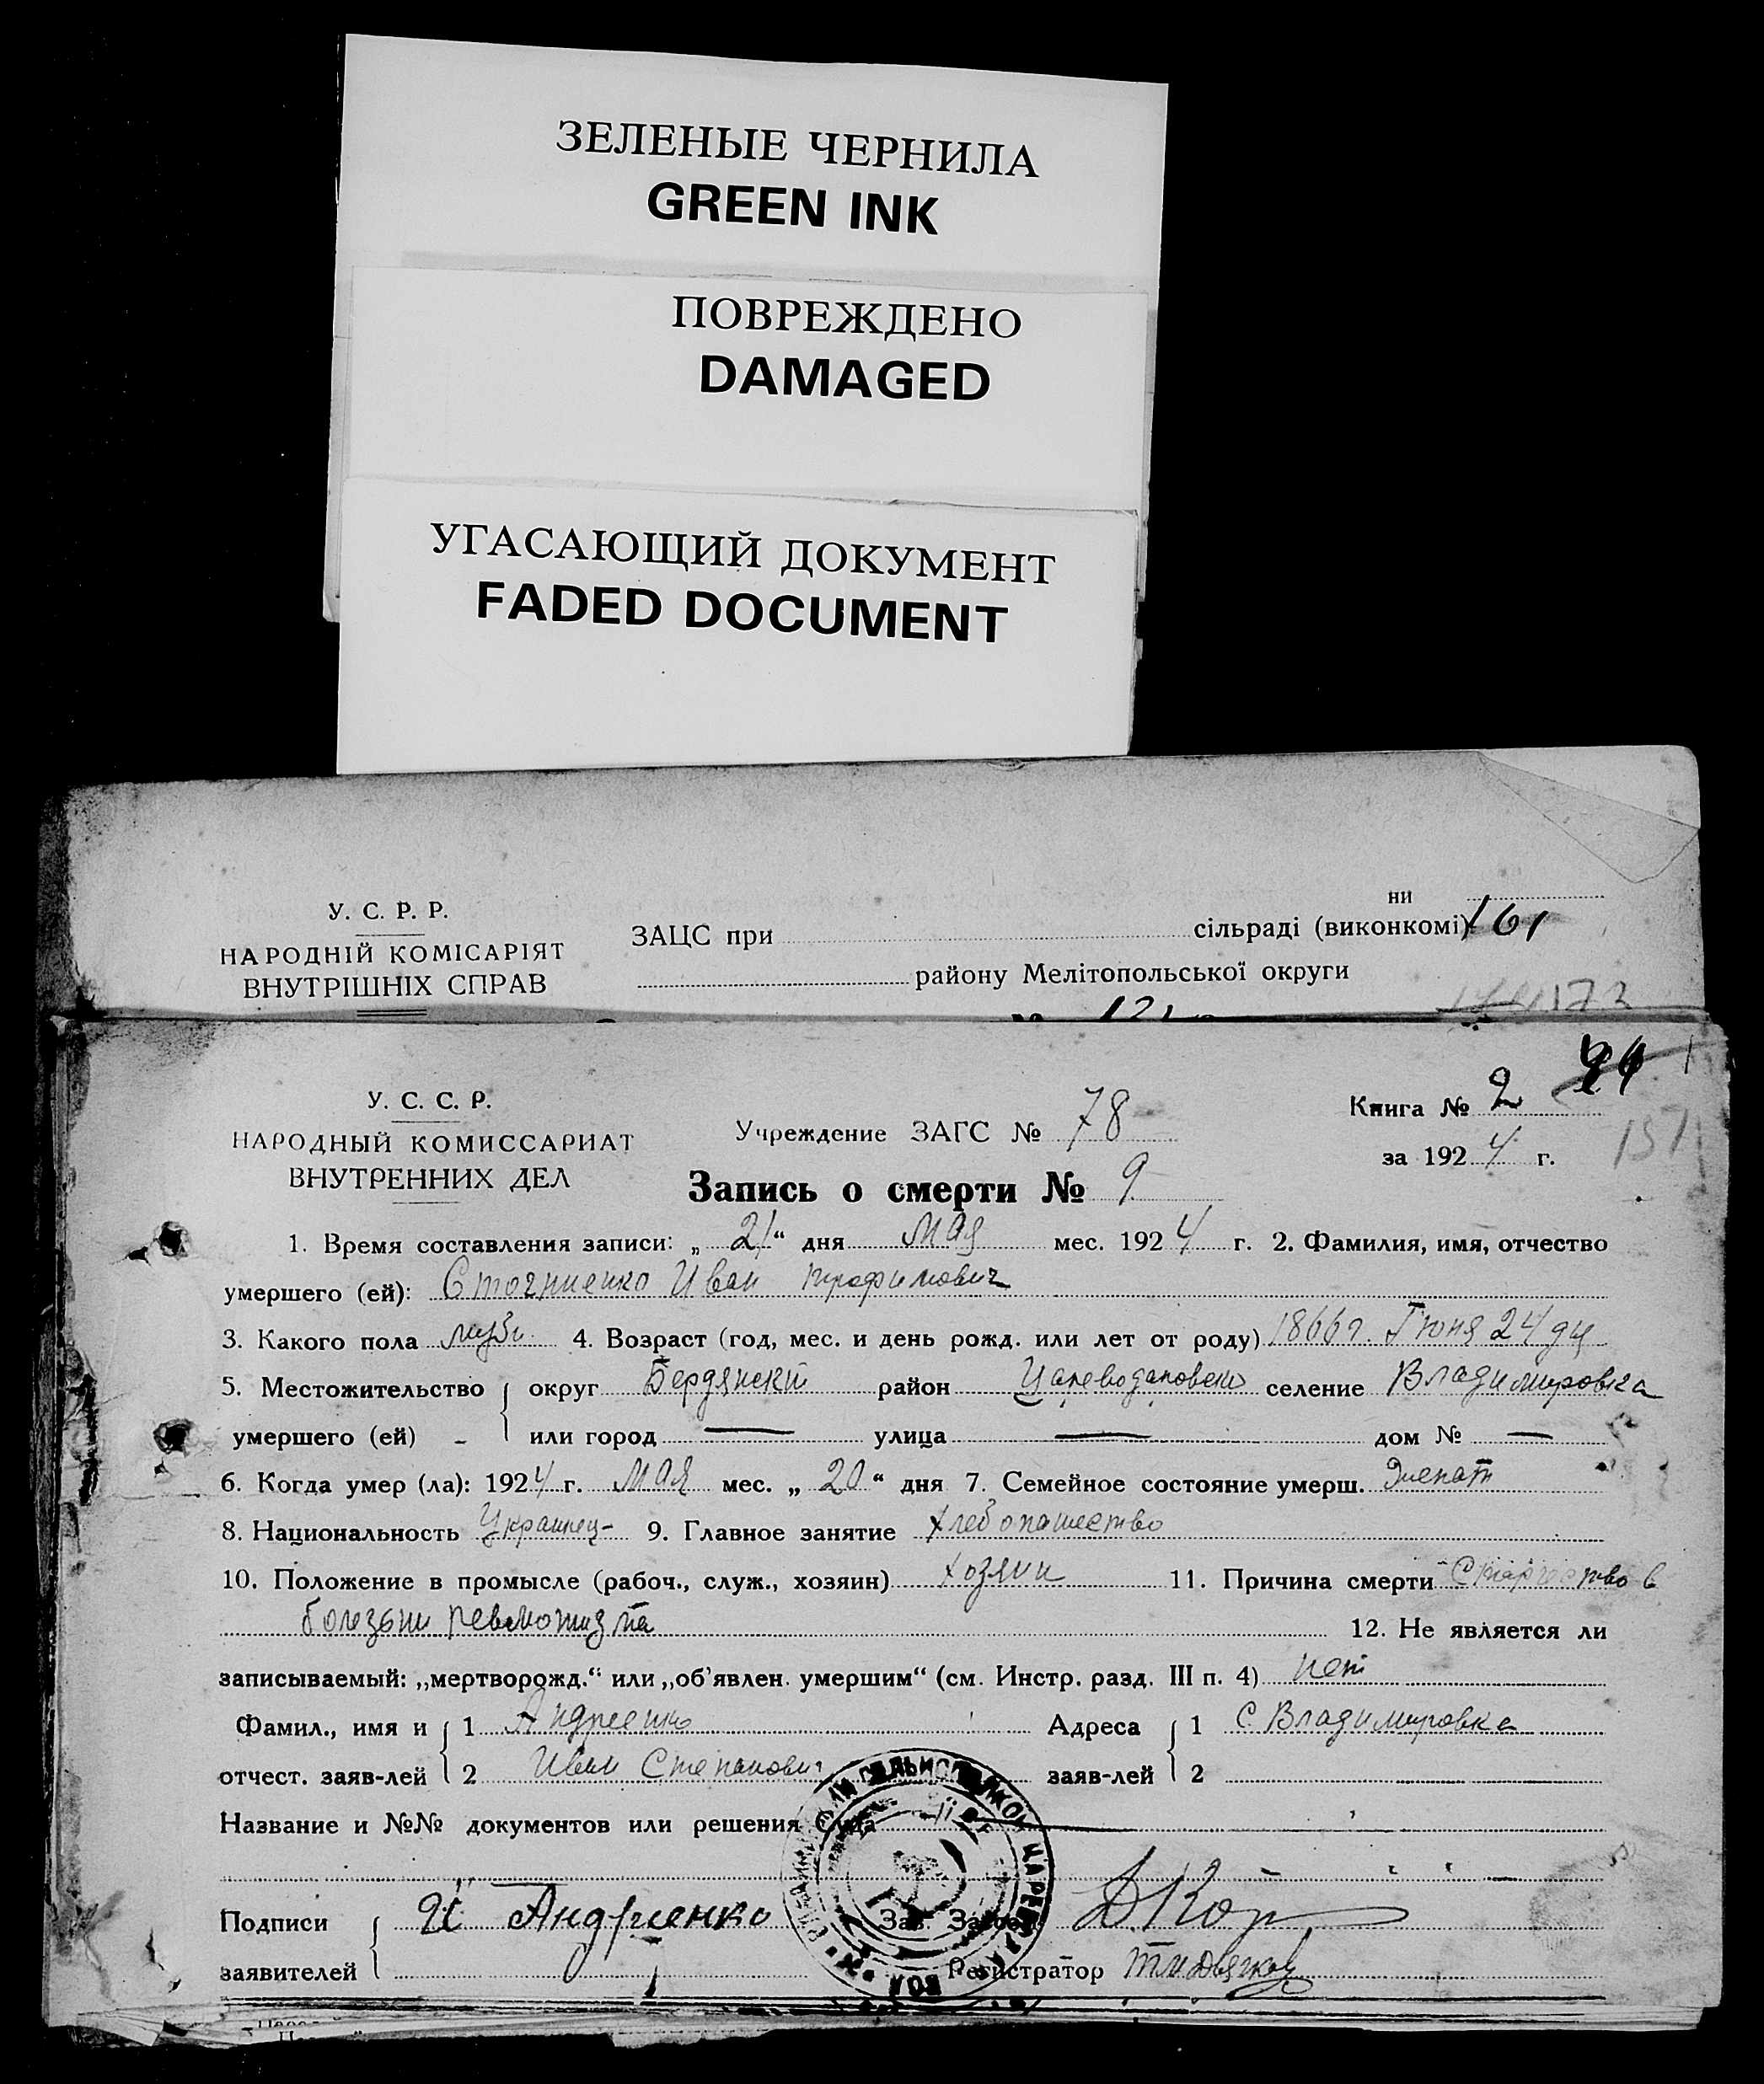 ЗЕЛЕНЫЕ ЧЕРНИЛА
GREEN INK
ПОВРЕЖДЕНО
DAMAGED
УГАСАЮЩИЙ ДОКУМЕНТ
FADED DOCUMENT
У. С. Р. Р.
НАРОДНІЙ КОМІСАРІЯТ
ВНУТРІШНІХ СПРАВ
ни
ЗАЦС при сільраді (виконкомі) 161
району Мелітопольської округи
У. С. С. Р.
НАРОДНЫЙ КОМИССАРИАТ
ВНУТРЕННИХ ДЕЛ
Учреждение ЗАГС № 78
Книга № 2
за 1924 г. 157
Запись о смерти № 9
1. Время составления записи: „21“ дня мая мес. 1924 г. 2. Фамилия, имя, отчество
умершего (ей): Стогниенко Иван трофимович
3. Какого пола 4. Возраст (год, мес. и день рожд. или лет от роду) 1866 г. Июня 24 дн
5. Местожительство округ Бердянский район селение Владимировка
умершего (ей) или город — улица — дом № —
6. Когда умер (ла): 1924 г. мая мес. „20“ дня 7. Семейное состояние умерш. женат
8. Национальность Украинец 9. Главное занятие хлебопашество
10. Положение в промысле (рабоч., служ., хозяин) хозяин 11. Причина смерти
болезни
12. Не является ли
записываемый: „мертворожд.“ или „об’явлен. умершим“ (см. Инстр. разд. III п. 4) нет
Фамил., имя и 1 Андреенко Адреса 1 С Владимировка
отчест. заяв-лей 2 Иван Степанович заяв-лей 2
Название и №№ документов или решения Суда
Подписи И Андриенко Зав. Загсом
заявителей Регистратор